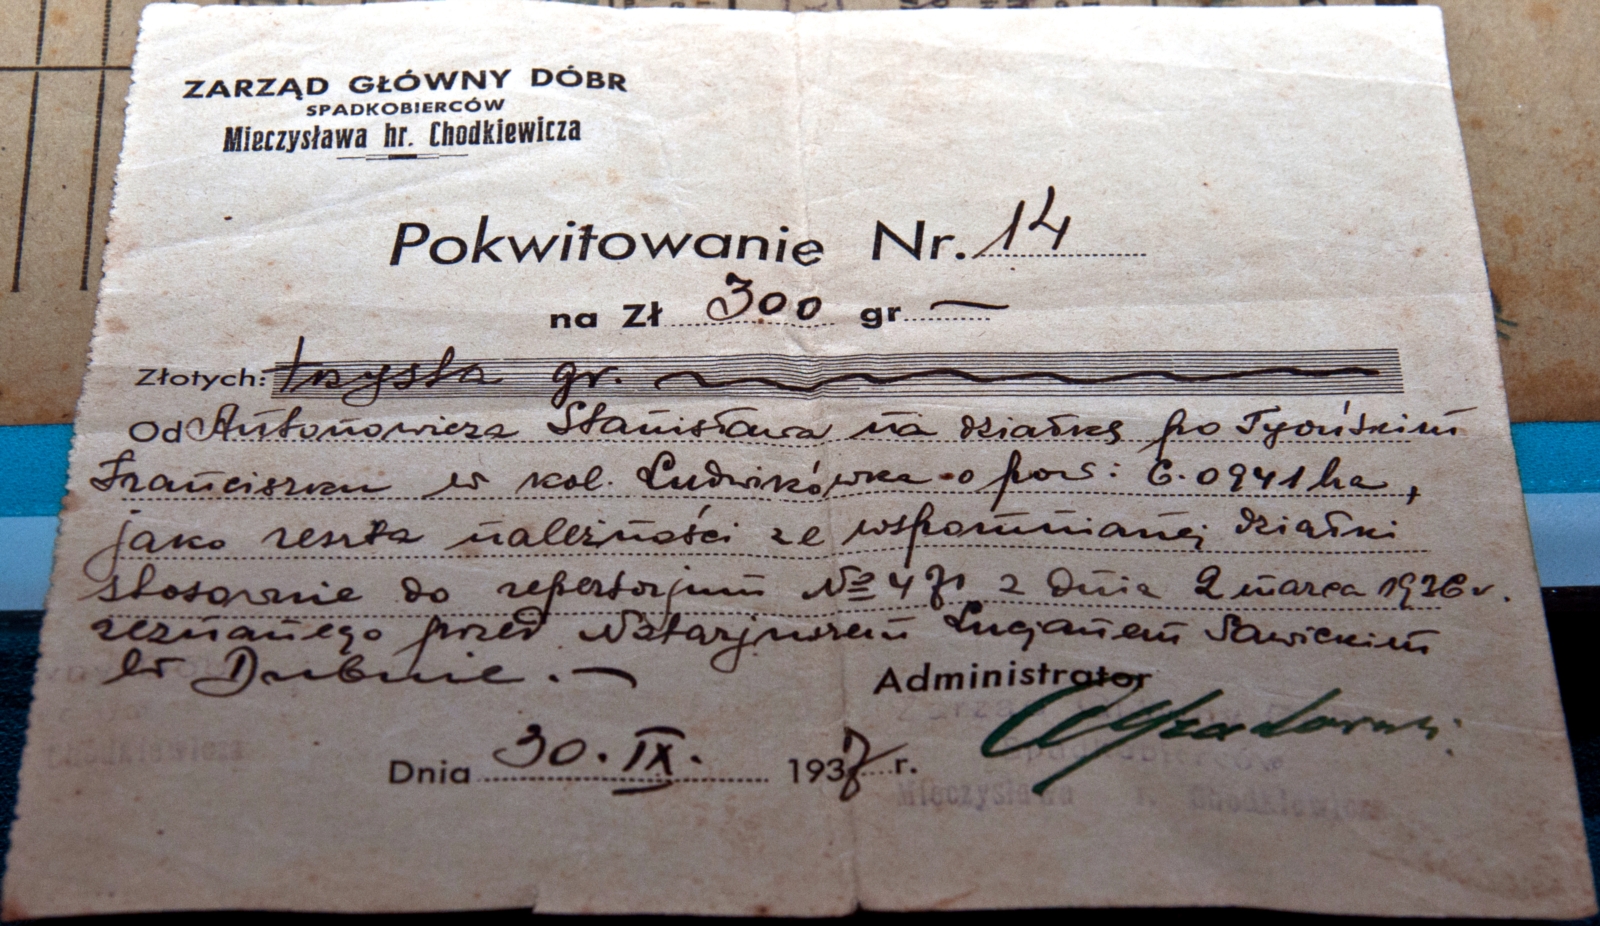 ZARZĄD GŁÓWNY DÓBR
SPADKOBIERCÓW
Mieczysława hr. Chodkiewicza
Pokwitowanie Nr. 14
na Zł 300 gr —
Złotych: trzysta gr.
Od Antonowicza Stanisława na działkę po
Franciszku w kol. Ludwikówka o pow: 6.0941 ha,
jako reszta należności ze wspomnianej działki
stosownie do repertorjum № 471 z dnia 2 marca 1936 r.
zeznanego przed Notarjuszem Lucjanem Sawickim
w Dubnie. —
Administrator
Dnia 30. IX. 1937 r.
Mieczysława Chodkiewicza